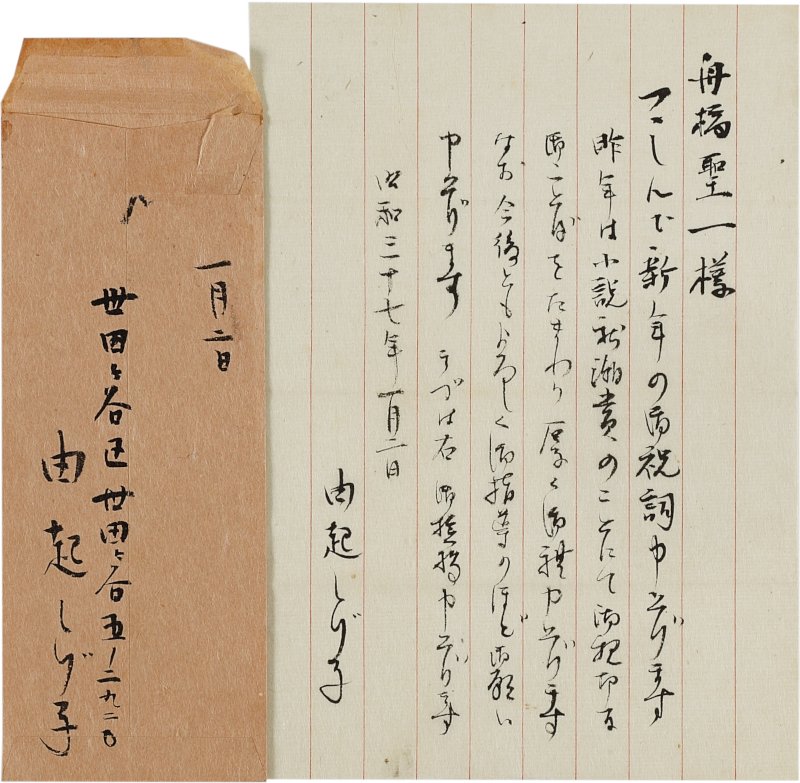 舟橋聖一様
つゝしんで新年の御祝詞申上げます
昨年は小説新潮賞のことにて御親切な
御ことばをたまわり厚く御礼申上げます
なお今後ともよろしく御指導のほど御願い
申上げます まづは右 御挨拶申上げます
昭和三十七年一月二日
由起しげ子
一月二日
世田ヶ谷区世田ヶ谷五ノ二九二〇
由起しげ子